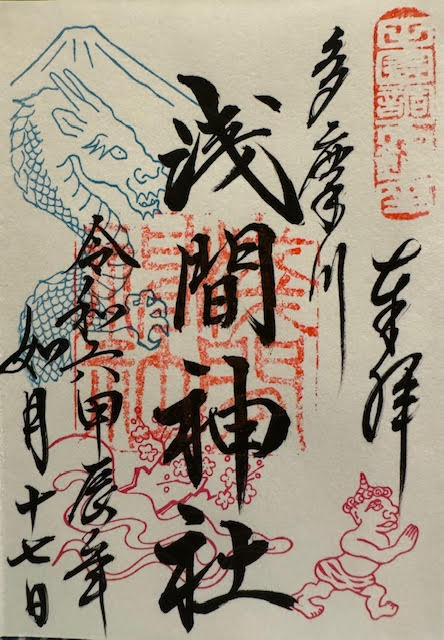 奉拝
多摩川
浅間神社
令和六甲辰年
如月十七日